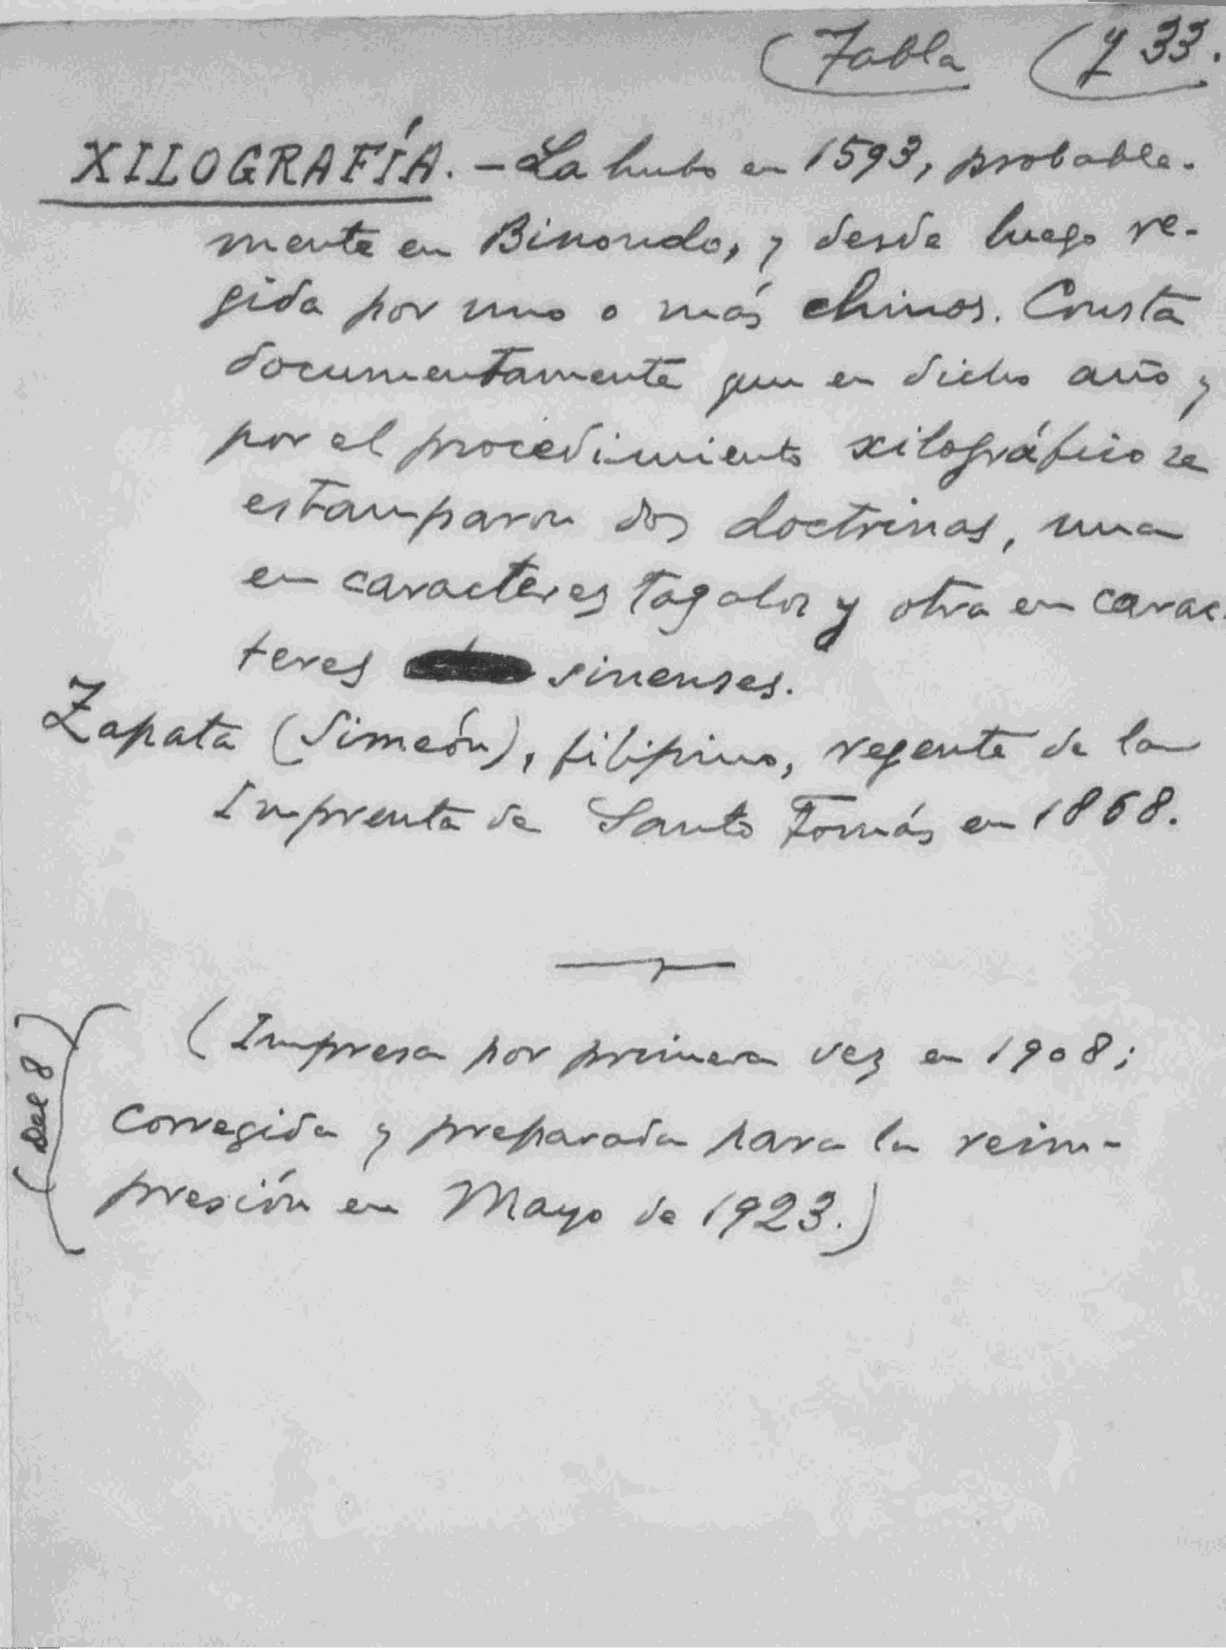 (Tabla (y 33.
XILOGRAFÍA. — La hubo en 1593, probable-
mente en Binondo, y desde luego re-
gida por uno o más chinos. Consta
documentamente que en dicho año y
por el procedimiento xilográfico se
estamparon dos doctrinas, una
en caracteres tagalos y otra en carac-
teres sinenses.
Zapata (Simeón), filipino, regente de la
Imprenta de Santo Tomás en 1868.
(Del 8)
(Impresa por primera vez en 1908;
corregida y preparada para la reim-
presión en Mayo de 1923.)